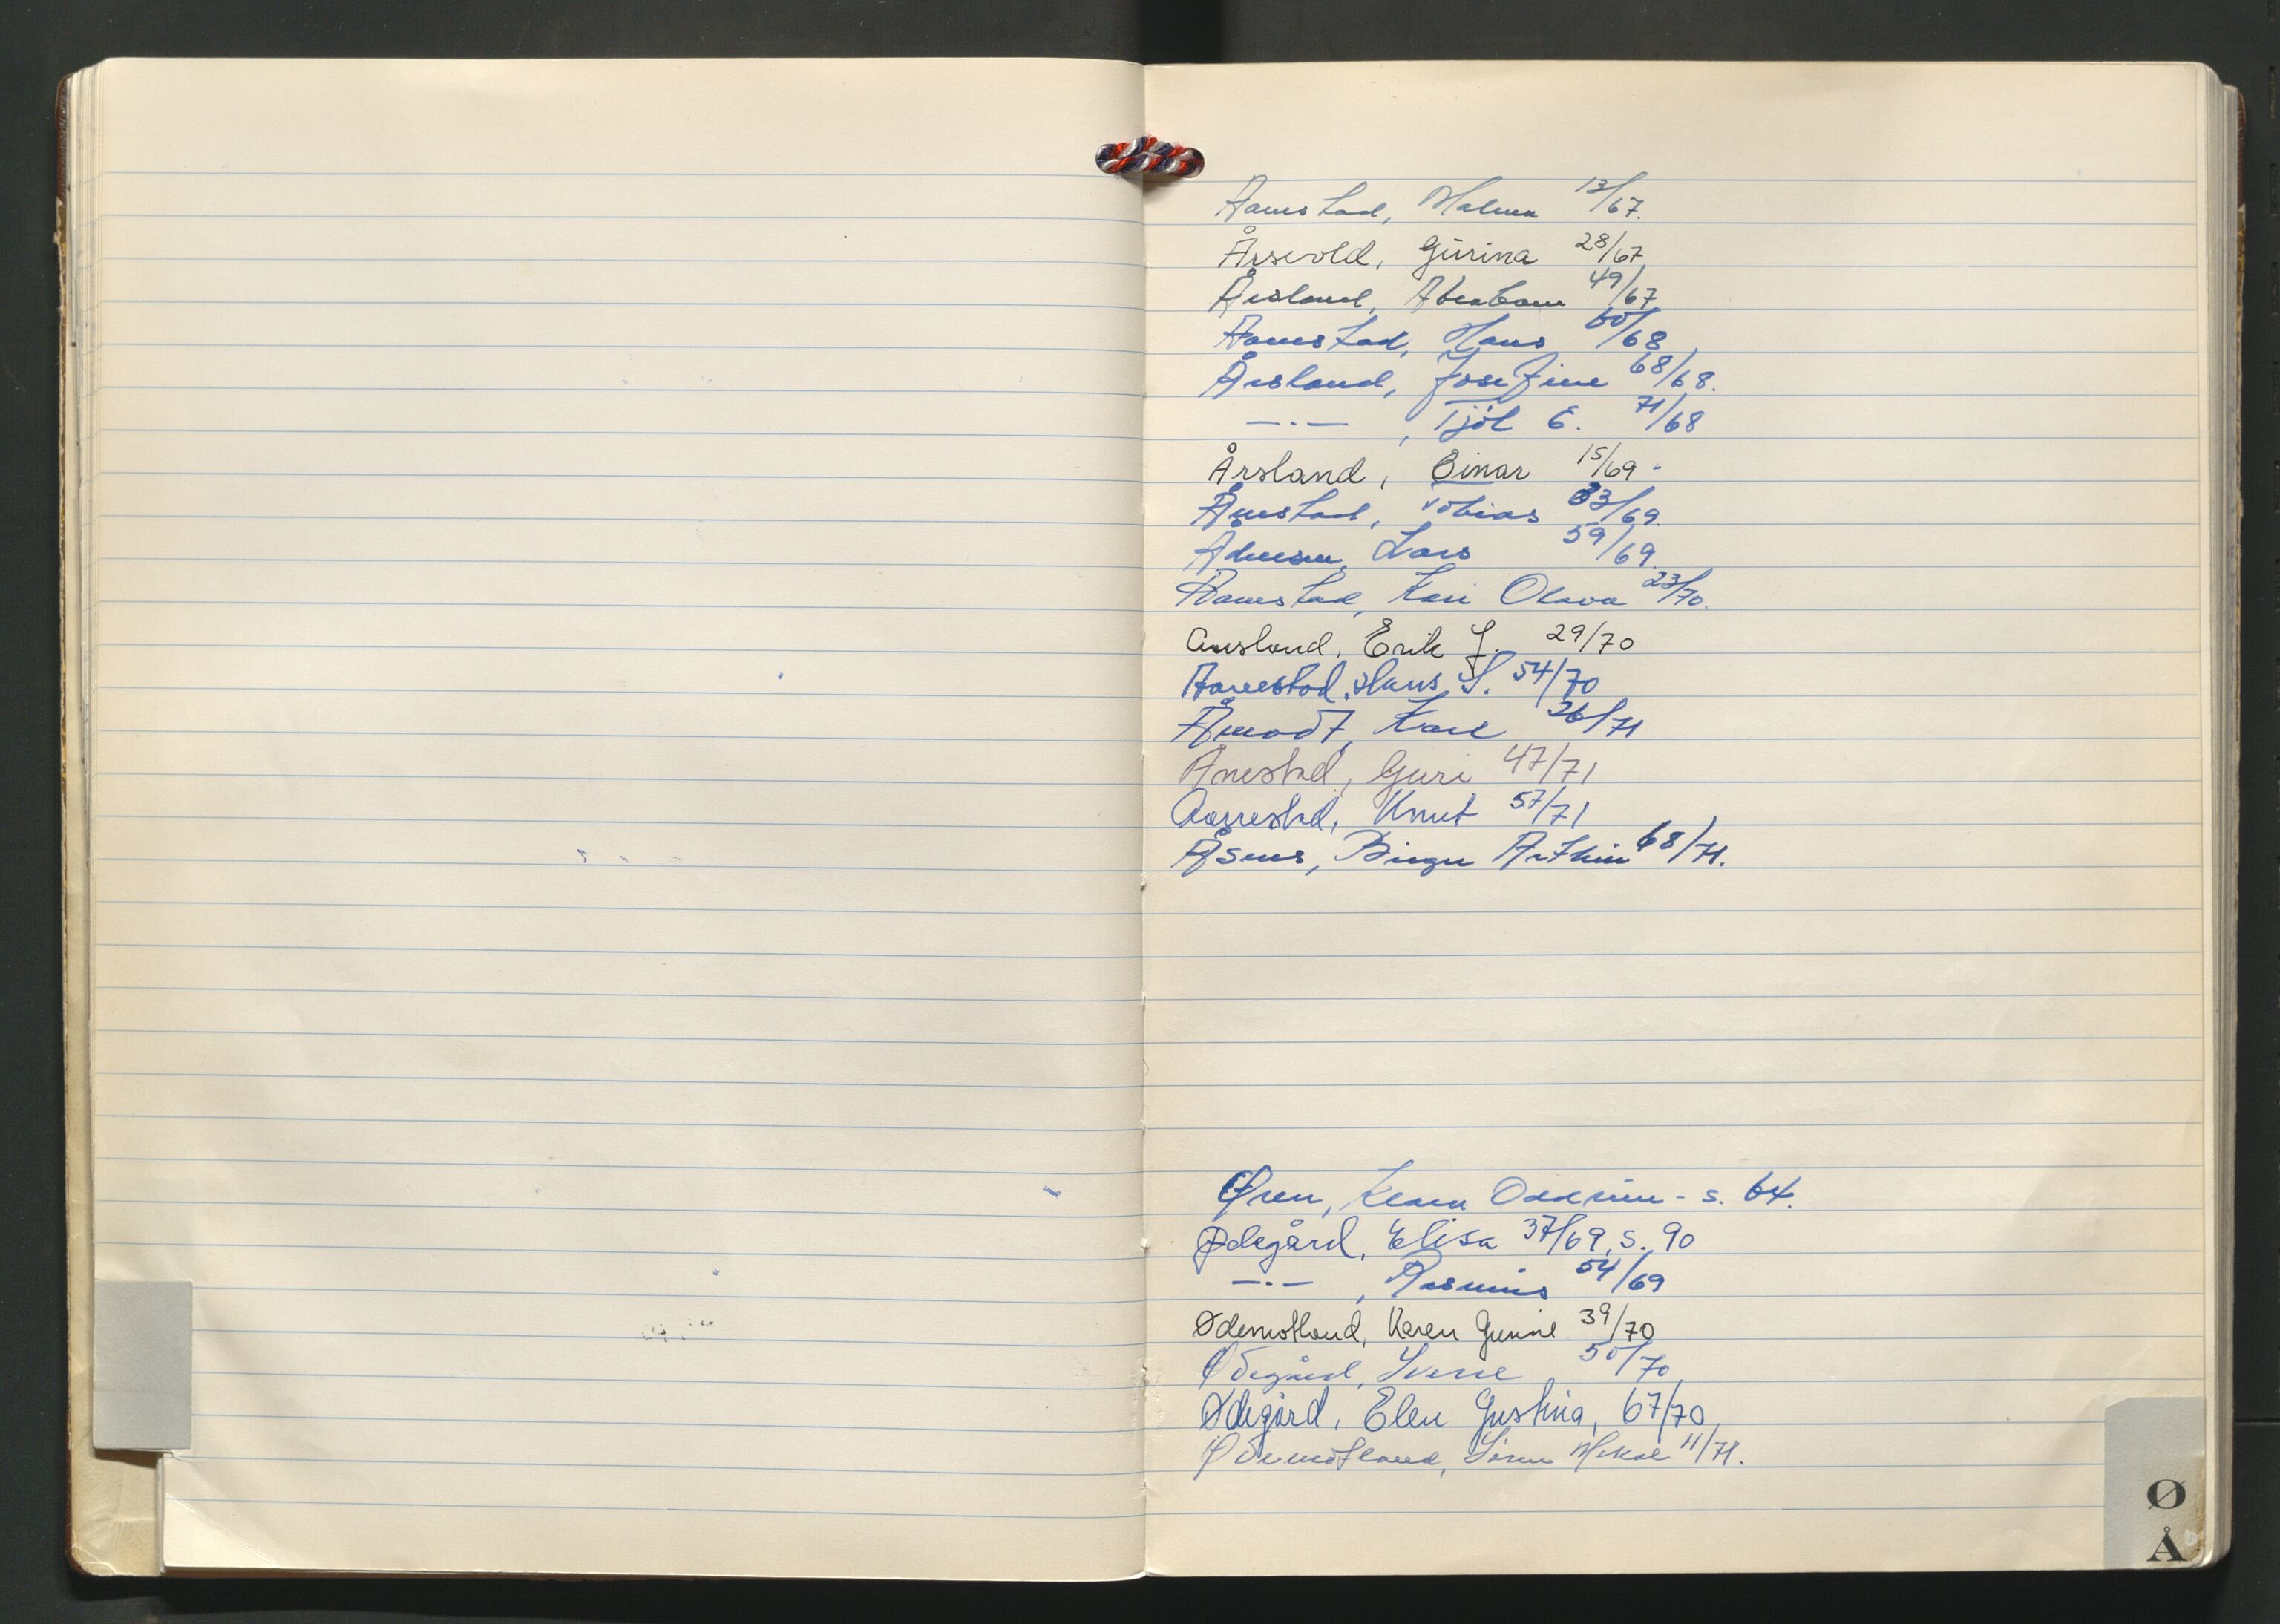 Aamstad, Malena 13/67.
Årsvold, Gurina 28/67
Årsland, Abraham 49/67
Aamstad, Hans 60/68
Årsland, Josefine 68/68.
—.— , Tjøl E. 71/68
Årsland, Einar 15/69.
Åmstad, Tobias 33/69.
Lars 59/69.
Aamstad, Kari Olava 23/70.
Ausland, Erik J. 29/70
Aarrestad, Hans S. 54/70
Åmodt, Karl 26/71
Ånestad, Guri 47/71
Aarrestad, Knut 57/71
Åsnes, Birger Arthur 68/71.
Øren, Klara Oddrun - s. 64.
Ødegård, Elisa 37/69, s. 90
—.— , Rasmus 54/69
Ødemotland, Karen Gurine 39/70
Ødegård, Sverre 50/70
Ødegård, Elen Gustina, 67/70
Ødemotland, Søren Mikal 11/71.
Ø
Å